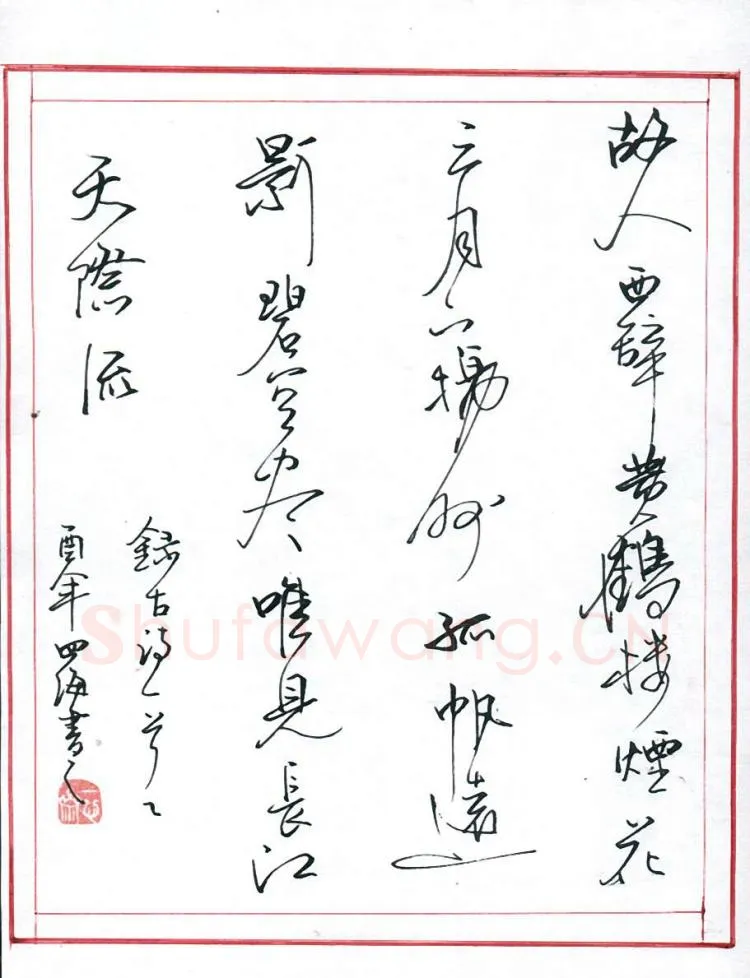 故人西辞黄鹤楼煙花
三月下揚州孤帆遠
影碧空尽唯見長江
天際流
錄古詩一首乙
酉年四海書之
Shufawang.CN